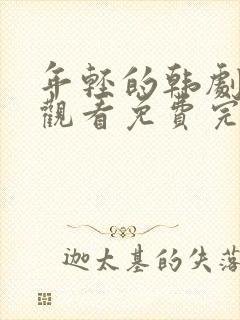 年轻的韩劇
觀看免費完
迦太基的失落